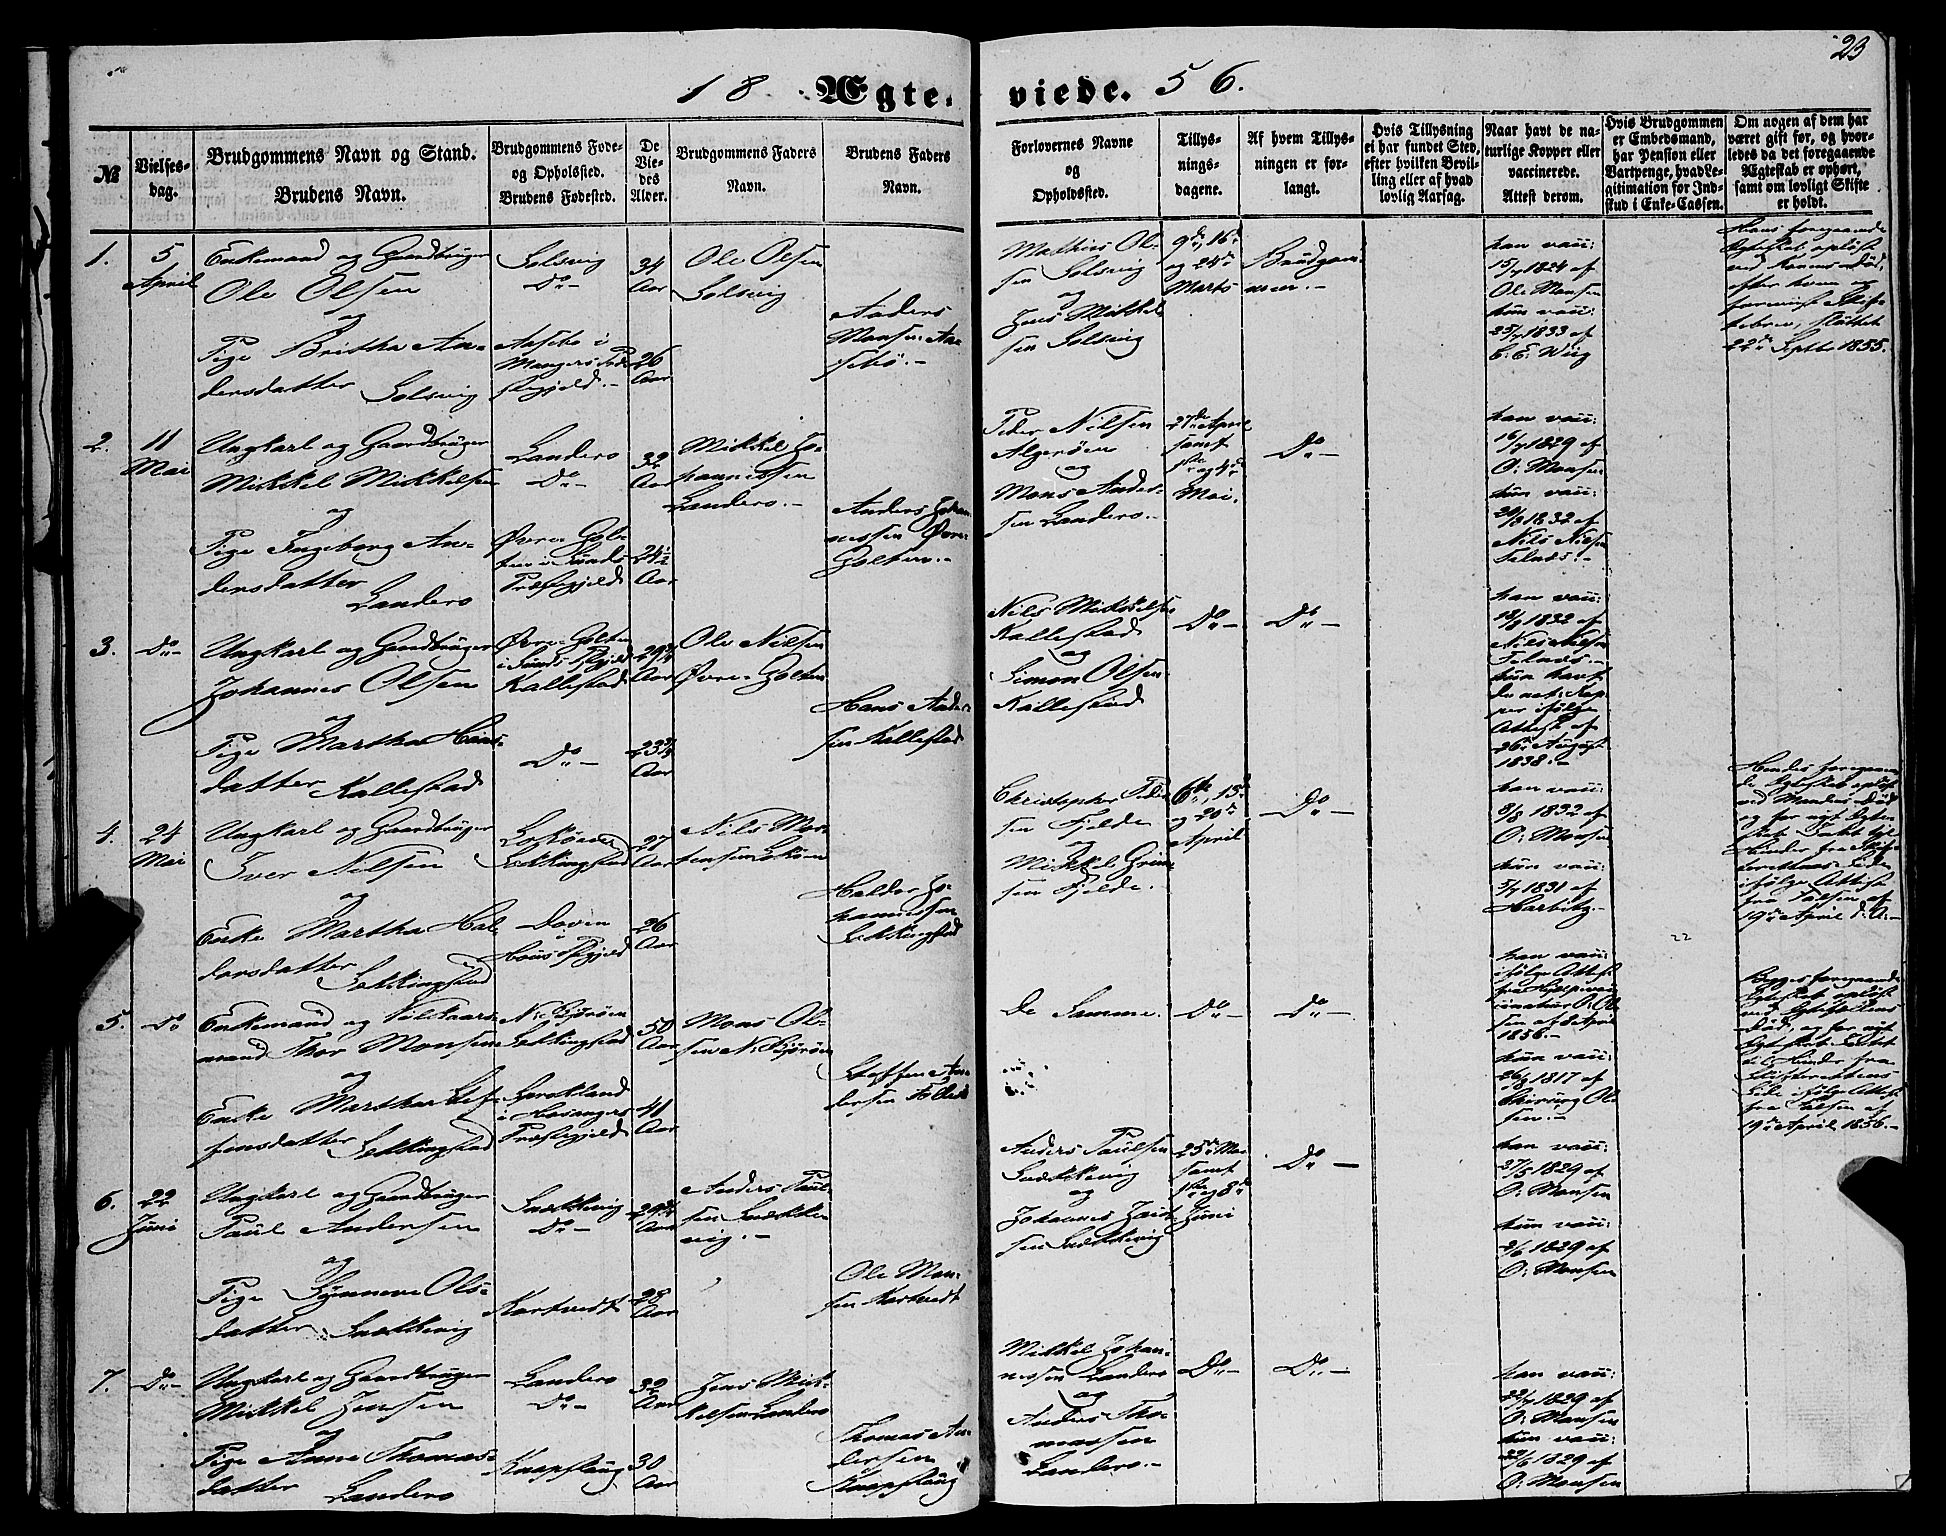 23
18 Ægteviede. 56.
№
Vielsesdag.
Brudgommens Navn og Stand.
Brudens Navn.
Brudgommens Fode-
og Opholdssted.
Brudens Fødested.
De
Vie-
des
Alder.
Brudgommens Faders
Navn.
Brudens Faders
Navn.
Forlovernes Navne
og
Opholdssted.
Tillys-
nings-
dagene.
Af hvem Tillys-
ningen er for-
langt.
Hvis Tillysning
ei har fundet Sted,
efter hvilken Bevil-
ling eller af hvad
lovlig Aarsag.
Naar havt de na-
turlige Kopper eller
vaccinerede.
Attest derom.
Hvis Brudgommen
er Embedsmand,
har Pension eller
Vartpenge, hvad Le-
gitimation for Ind-
skud i Enke-Cassen.
Om nogen af dem har
været gift før, og hvor-
ledes da det foregaaende
Ægteskab er ophørt,
samt om lovligt Skifte
er holdt.
1.
5
April
Enkemand og Gaardbruger
Ole Olsen
og
Pige Britha An-
dersdatter Solsvig
Solsvig
Do -
Mangers
34
Aar
26
Aar
Ole Olsen
Solsvig
Anders
Monsen
Mathies Ol-
sen Solsvig
og
Jens Mikkel
sen Solsvig
9de, 16de
og 24de
Marts
Brudgom
men. -
han vacc:
15/7 1824 af
Ole Monsen
hun vacc:
25/7 1833 af
Hans foregaaende
Døb
22de Septbr 1855.
2.
11
Mai
Ungkarl og Gaardbruger
Mikkel Mikkelsen
og
Pige Ingeborg An-
dersdatter
Landero
Landero
Do -
Øvre Gol-
ten i Sunds
Præstegjeld
32
Aar
24½
Aar
Mikkel Jo-
hannessen
Landero. -
Anders Johan
nessen Øvre
Golten. -
Peder Nilsen
Algerøen
og
Mons Ander-
sen Landero. -
27de April
samt
1ste og 4de
Mai.
Do -
han vacc:
16/7 1829 af
O. Monsen
hun vacc:
1832 af
Nils Nilsen
Telnæs. -
3.
Do -
Ungkarl og Gaardbruger
Johannes Olsen
og
Pige Martha Hans-
datter Kallestad
Øvre Golten
i Sunds Pgjeld
Kallestad
Do -
29¾
Aar
23¾
Aar
Ole Nilsen
Øvre Golten
Hans Ander
sen Kallestad
Nils Mikkelsen
Kallestad
og
Simon Olsen
Kallestad
Do -
Do -
han vacc:
1832 af
Nils Nilsen
Telnæs. -
hun havt
de nat: Kop
per ifølge
Attest af
26de August
1838. -
4.
24
Mai
Ungkarl og Gaardbruger
Iver Nilsen
og
Enke Martha Hal
dorsdatter
Sekkingstad
Sekkingstad
Houus Pgjeld
27
Aar
26
Aar
Nils Mor
tensen
Haldor Jo-
hannessen
Sekkingstad
Christopher Peder
sen Fjelde
og
Mikkel Grim
sen Fjelde.
6te, 13de
og 20de
April
Do -
han vacc:
8/8 1832 af
O. Monsen
hun vacc:
5/7 1831 af
Harbitz. -
Hendes foregaaen
de Ægteskab opløst
ved Mandens Død
og for nyt Ægte
ifølge Attest
19de April d. A. -
5.
Do
Enkemand og Vilkaars-
mand Thor Monsen
og
Enke Martha Stef-
fensdatter Sekkingstad
N. Bjørøen
Sekkingstad
Præstegjeld
50
Aar
41
Aar
Mons Ol-
sen N. Bjørøen
Steffen An
dersen
De Samme.
Do -
Do -
han vacc:
ifølge Attest
sen af 8 April
1856. -
hun vacc:
1817 af
Ol
sen. -
Begges foregaaende
Ægteskab opløst
ved Ægtefællens
Død, og for nyt
Ægteskab Intet
til Hinder fra
Side ifølge Attest
19de April 1856. -
6.
22
Juni
Ungkarl og Gaardbruger
Paul Andersen
og
Pige Synneve Ols-
datter Snekkevig
Snekkevig
Do -
Kartvedt
29¾
Aar
28
Aar
Anders Paul-
sen Snekke
vig. -
Ole Mon-
sen Kartvedt
Anders Paulsen
Snekkevig
og
Johannes
sen Snekkevig
25de Mai
samt
1ste og 8de
Juni
Do -
han vacc:
27/5 1829 af
O. Monsen
hun vacc:
2/6 1829 af
O. Monsen
7.
Do -
Ungkarl og Gaardbruger
Mikkel Jensen
og
Pige Anne Thomas-
datter Landero
Landero
Do -
Knapskaug
32
Aar
30
Aar
Jens Mik-
kelsen Landero
Thomas An-
dersen
Knapskaug
Mikkel Johan-
nessen Landero
og
Anders Tho-
massen
Landero. -
Do -
Do -
han vacc:
1829 af
O. Monsen
hun vacc:
22/6 1829 af
O. Monsen